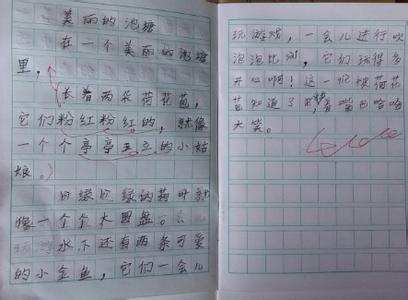 美丽的池塘
在一个美丽的池塘
里，
长着两朵荷花苞，
它们粉红粉红的，就像
一个个亭亭玉立的小姑
娘。
绿绿的荷叶就
像一个个大圆盘。
水下还有两条可爱
的小金鱼，它们一会儿
玩游戏，一会儿进行吹
泡泡比赛，它们玩得多
开心啊！这一切被荷花
苞知道了，着嘴巴哈哈
大笑。